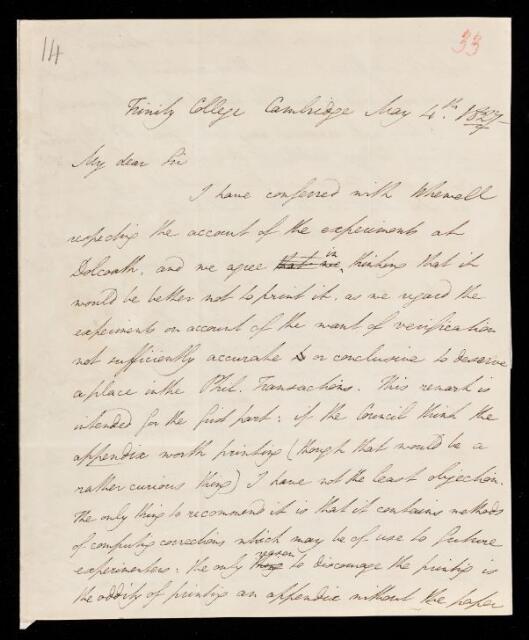 14
33
Trinity College Cambridge May 4th. 1827
My dear Sir
I have conferred with Whewell
respecting the account of the experiments at
Dolcoath, and we agree that we in thinking that it
would be better not to print it, as we regard the
experiments on account of the want of verification
not sufficiently accurate or conclusive to deserve
a place in the Phil. Transactions. This remark is
intended for the first part: if the Council think the
appendix worth printing (though that would be a
rather curious thing) I have not the least objection.
The only thing to recommend it is that it contains methods
of computing corrections which may be of use to future
experimenters: the only reason to discourage the printing is
the oddity of printing an appendix without the paper